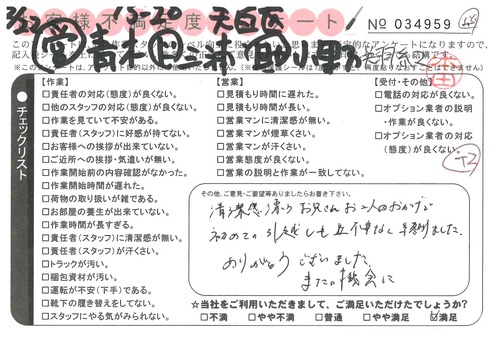 お客様不満足度アンケート
3/23
13-20 天白区
No 034959
チェックリスト
【作業】
□責任者の対応(態度)が良くない。
□他のスタッフの対応(態度)が良くない。
□作業を見ていて不安がある。
□責任者(スタッフ)に好感が持てない。
□お客様への挨拶が出来ていない。
□ご近所への挨拶・気遣いが無い。
□作業開始前の内容確認がなかった。
□作業開始時間が遅れた。
□荷物の取り扱いが雑である。
□お部屋の養生が出来ていない。
□作業時間が長すぎる。
□責任者(スタッフ)に清潔感が無い。
□責任者(スタッフ)が汗くさい。
□トラックが汚い。
□梱包資材が汚い。
□運転が不安(下手)である。
□靴下の履き替えをしてない。
□スタッフにやる気がみられない。
【営業】
□見積もり時間に遅れた。
□見積もり時間が長い。
□営業マンに清潔感が無い。
□営業マンが煙草くさい。
□営業マンが汗くさい。
□営業態度が良くない。
□営業の説明と作業が一致してない。
【受付・その他】
□電話の対応が良くない。
□オプション業者の説明
・作業が良くない。
□オプション業者の対応
(態度)が良くない。
その他、ご意見・ご要望等ありましたらお書き下さい。
清潔感漂う お兄さんお二人のおかげで
初めての引越しも 無事
ありがとう ございました。
またの機会に
☆当社をご利用いただきまして、ご満足いただけたでしょうか?
□不満 □やや不満 □普通 □やや満足 ☑満足